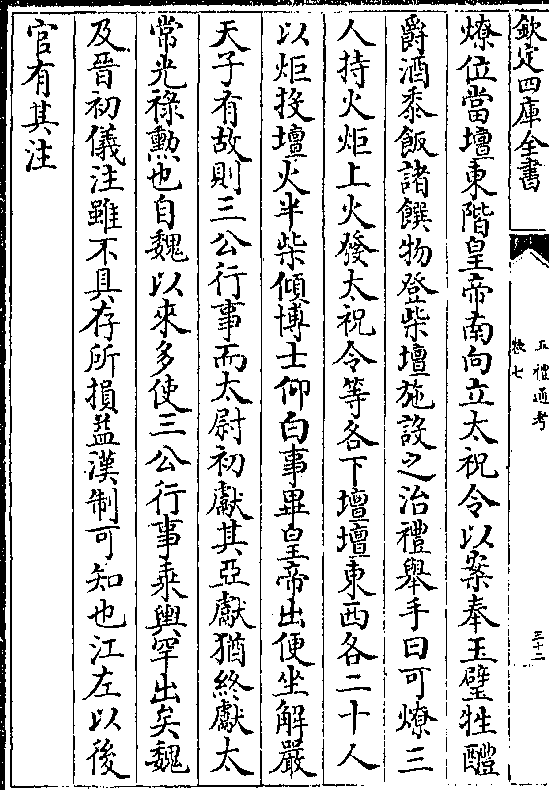 欽定四庫全書
五禮通考
卷七
三十二
燎位當壇東階皇帝南向立太祝令以案奉玉璧牲醴
爵酒黍飯諸饌物登柴壇施設之治禮舉手曰可燎三
人持火炬上火發太祝令等各下壇壇東西各二十人
以炬投壇火半柴傾博士仰白事畢皇帝出便坐解嚴
天子有故則三公行事而太尉初獻其亞獻猶終獻太
常光祿勲也自魏以來多使三公行事乘輿罕出矣魏
及晉初儀注雖不具存所損益漢制可知也江左以後
官有其注